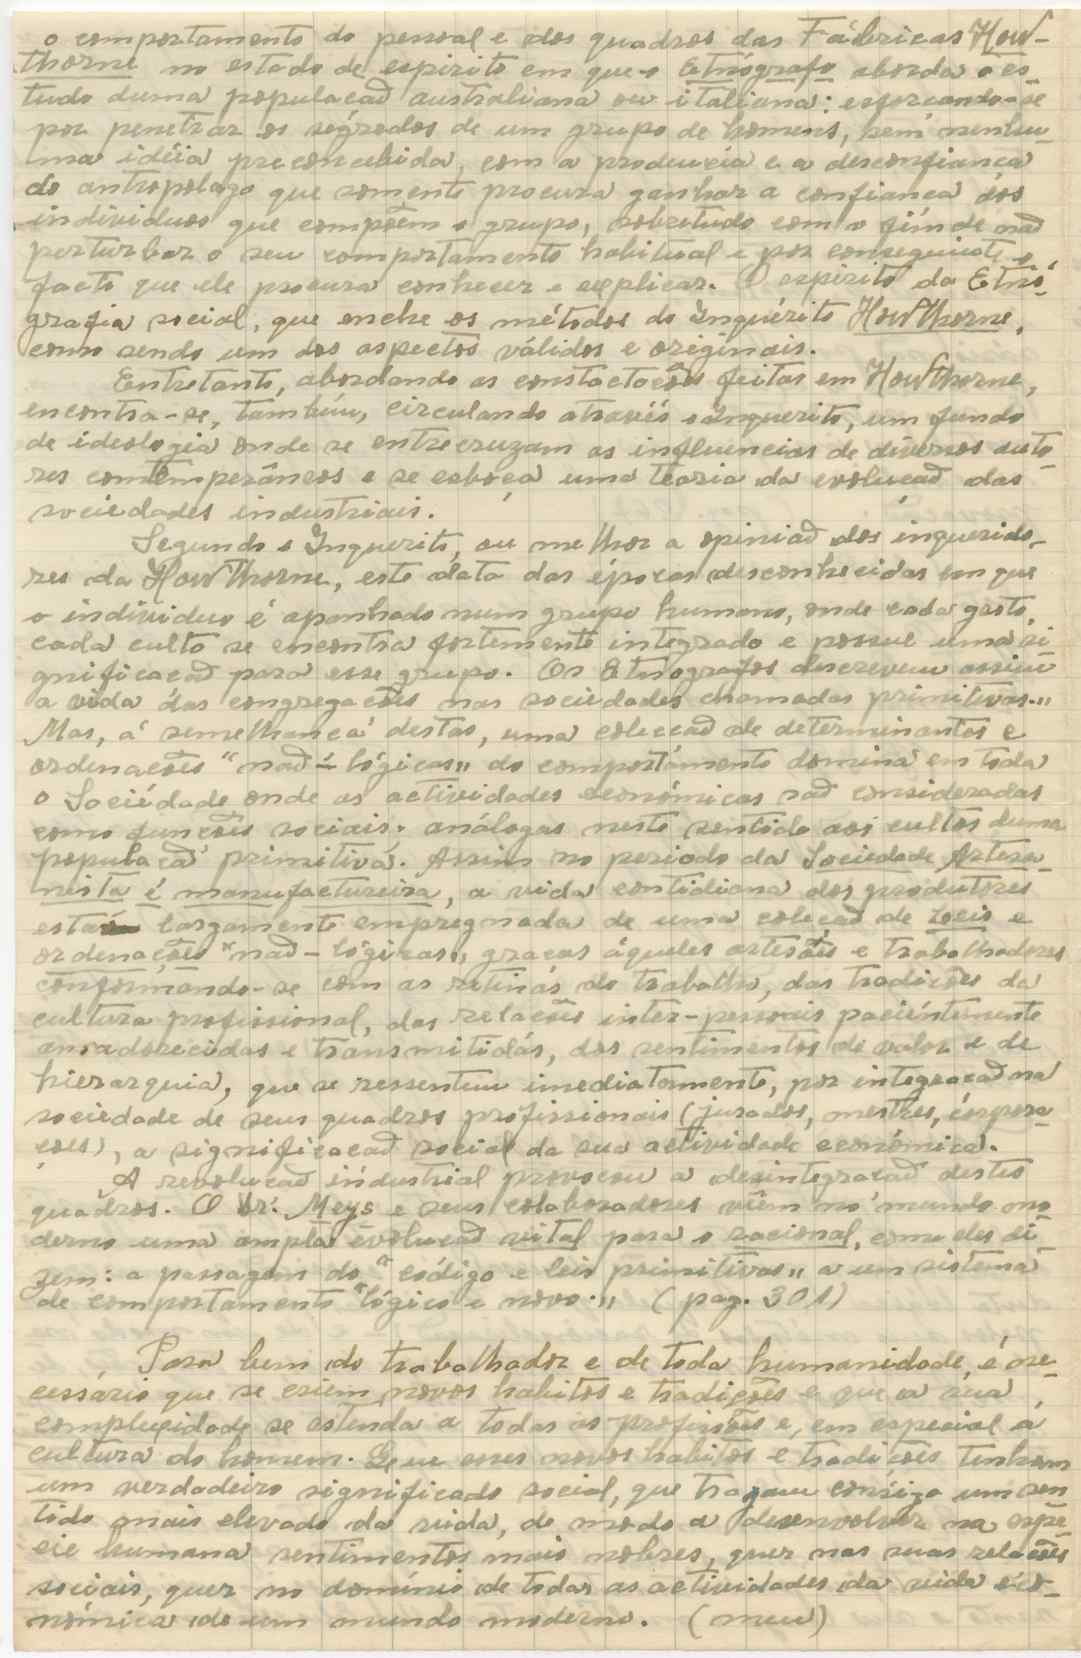 o comportamento do pessoal e dos quadros das Fábricas How-
thorne no estado de espirito em que o Etnógrafo aborda o es-
tudo duma populacaõ australiana ou italiana: esforcando-se
por penetrar os ségredos de um grupo de homens, sem nenhu-
ma idéia preconcebida, com a prudencia e a desconfianca
do antropologo que somente procura ganhar a confianca dos
individuos que compõem o grupo, sobretudo com o fim de naõ
perturbar o seu comportamento habitual e por conseguinte o
facto que ele procura conhecer e explicar. O espirito da Etnó-
grafia social, que enche os métodos do Inquérito HowThorne,
como sendo um dos aspectos válidos e originais.
Entretanto, abordando as constactacões feitas em HowThorne,
encontra-se, também, circulando através o Inquerito, um fundo
de ideologia onde se entrecruzam as influencias de diversos auto-
res contemperâneos e se esboça uma teoria da evolucaõ das
sociedades industriais.
Segundo o Inquerito, ou melhor a opiniaõ dos inquerido-
res da HowThorne, este data das épocas desconhecidas em que
o individuo é apanhado num grupo humano, onde cada gesto,
cada culto se encontra fortemente integrado e possue uma si-
gnificacaõ para esse grupo. Os Etnografos descrevem assim
a vida das congregacões nas sociedades chamadas primitivas.„
Mas, á semelhanca destas, uma coleccaõ de determinantes e
ordenacões "naõ-lógicas„ do comportamento domina em toda
o Sociédade onde as actividades económicas saõ consideradas
como funcões sociais; análogas neste sentido aos cultos duma
populacaõ primitiva. Assim no periodo da Sociedade Artesa-
nista é manufactureira, a vida contidiana dos produtores
está largamente empregnada de uma coleçaõ de Leis e
ordenações "naõ-lógicas„ gracas áqueles artesões e trabalhadores
conformando-se com as rutinás do trabalho, das tradicões da
cultura profissional, das relacões inter-pessoais paciéntemente
amadorecidas e transmitidás, dos sentimentos de valor e de
hierarquia, que se ressentem imediatamente, por integracaõ na
sociedade de seus quadros profissionais (jurados, mestres, corpora-
coes), a significacaõ social da sua actividade económica.
A revolucaõ indústrial provocou a desintegracaõ destes
quadros. O Dr. Meys e seus colaboradores vêem no mundo mo-
derno uma ampla evolucaõ vital para o racional, como eles di-
zem: a passagem do "código e leis primitivas„ a um sistema
de comportamento "lógico e novo.„ (pag. 301)
Para bem do trabalhador e de toda humanidade, é ne-
cessário que se criem novos habitos e tradições e que a sua
complexidade se estenda a todas as profissões e, em especial á
cultura do homem. Que esses novos habitos e tradicões tenham
um verdadeiro significado social, que tragam consigo um sen-
tido mais elevado da vida, de modo a desenvolver na espé-
cie humana sentimentos mais nobres, quer nas suas relacões
sociais, quer no dominio de todas as actividades da vida éco-
nómica de um mundo moderno. (meu)